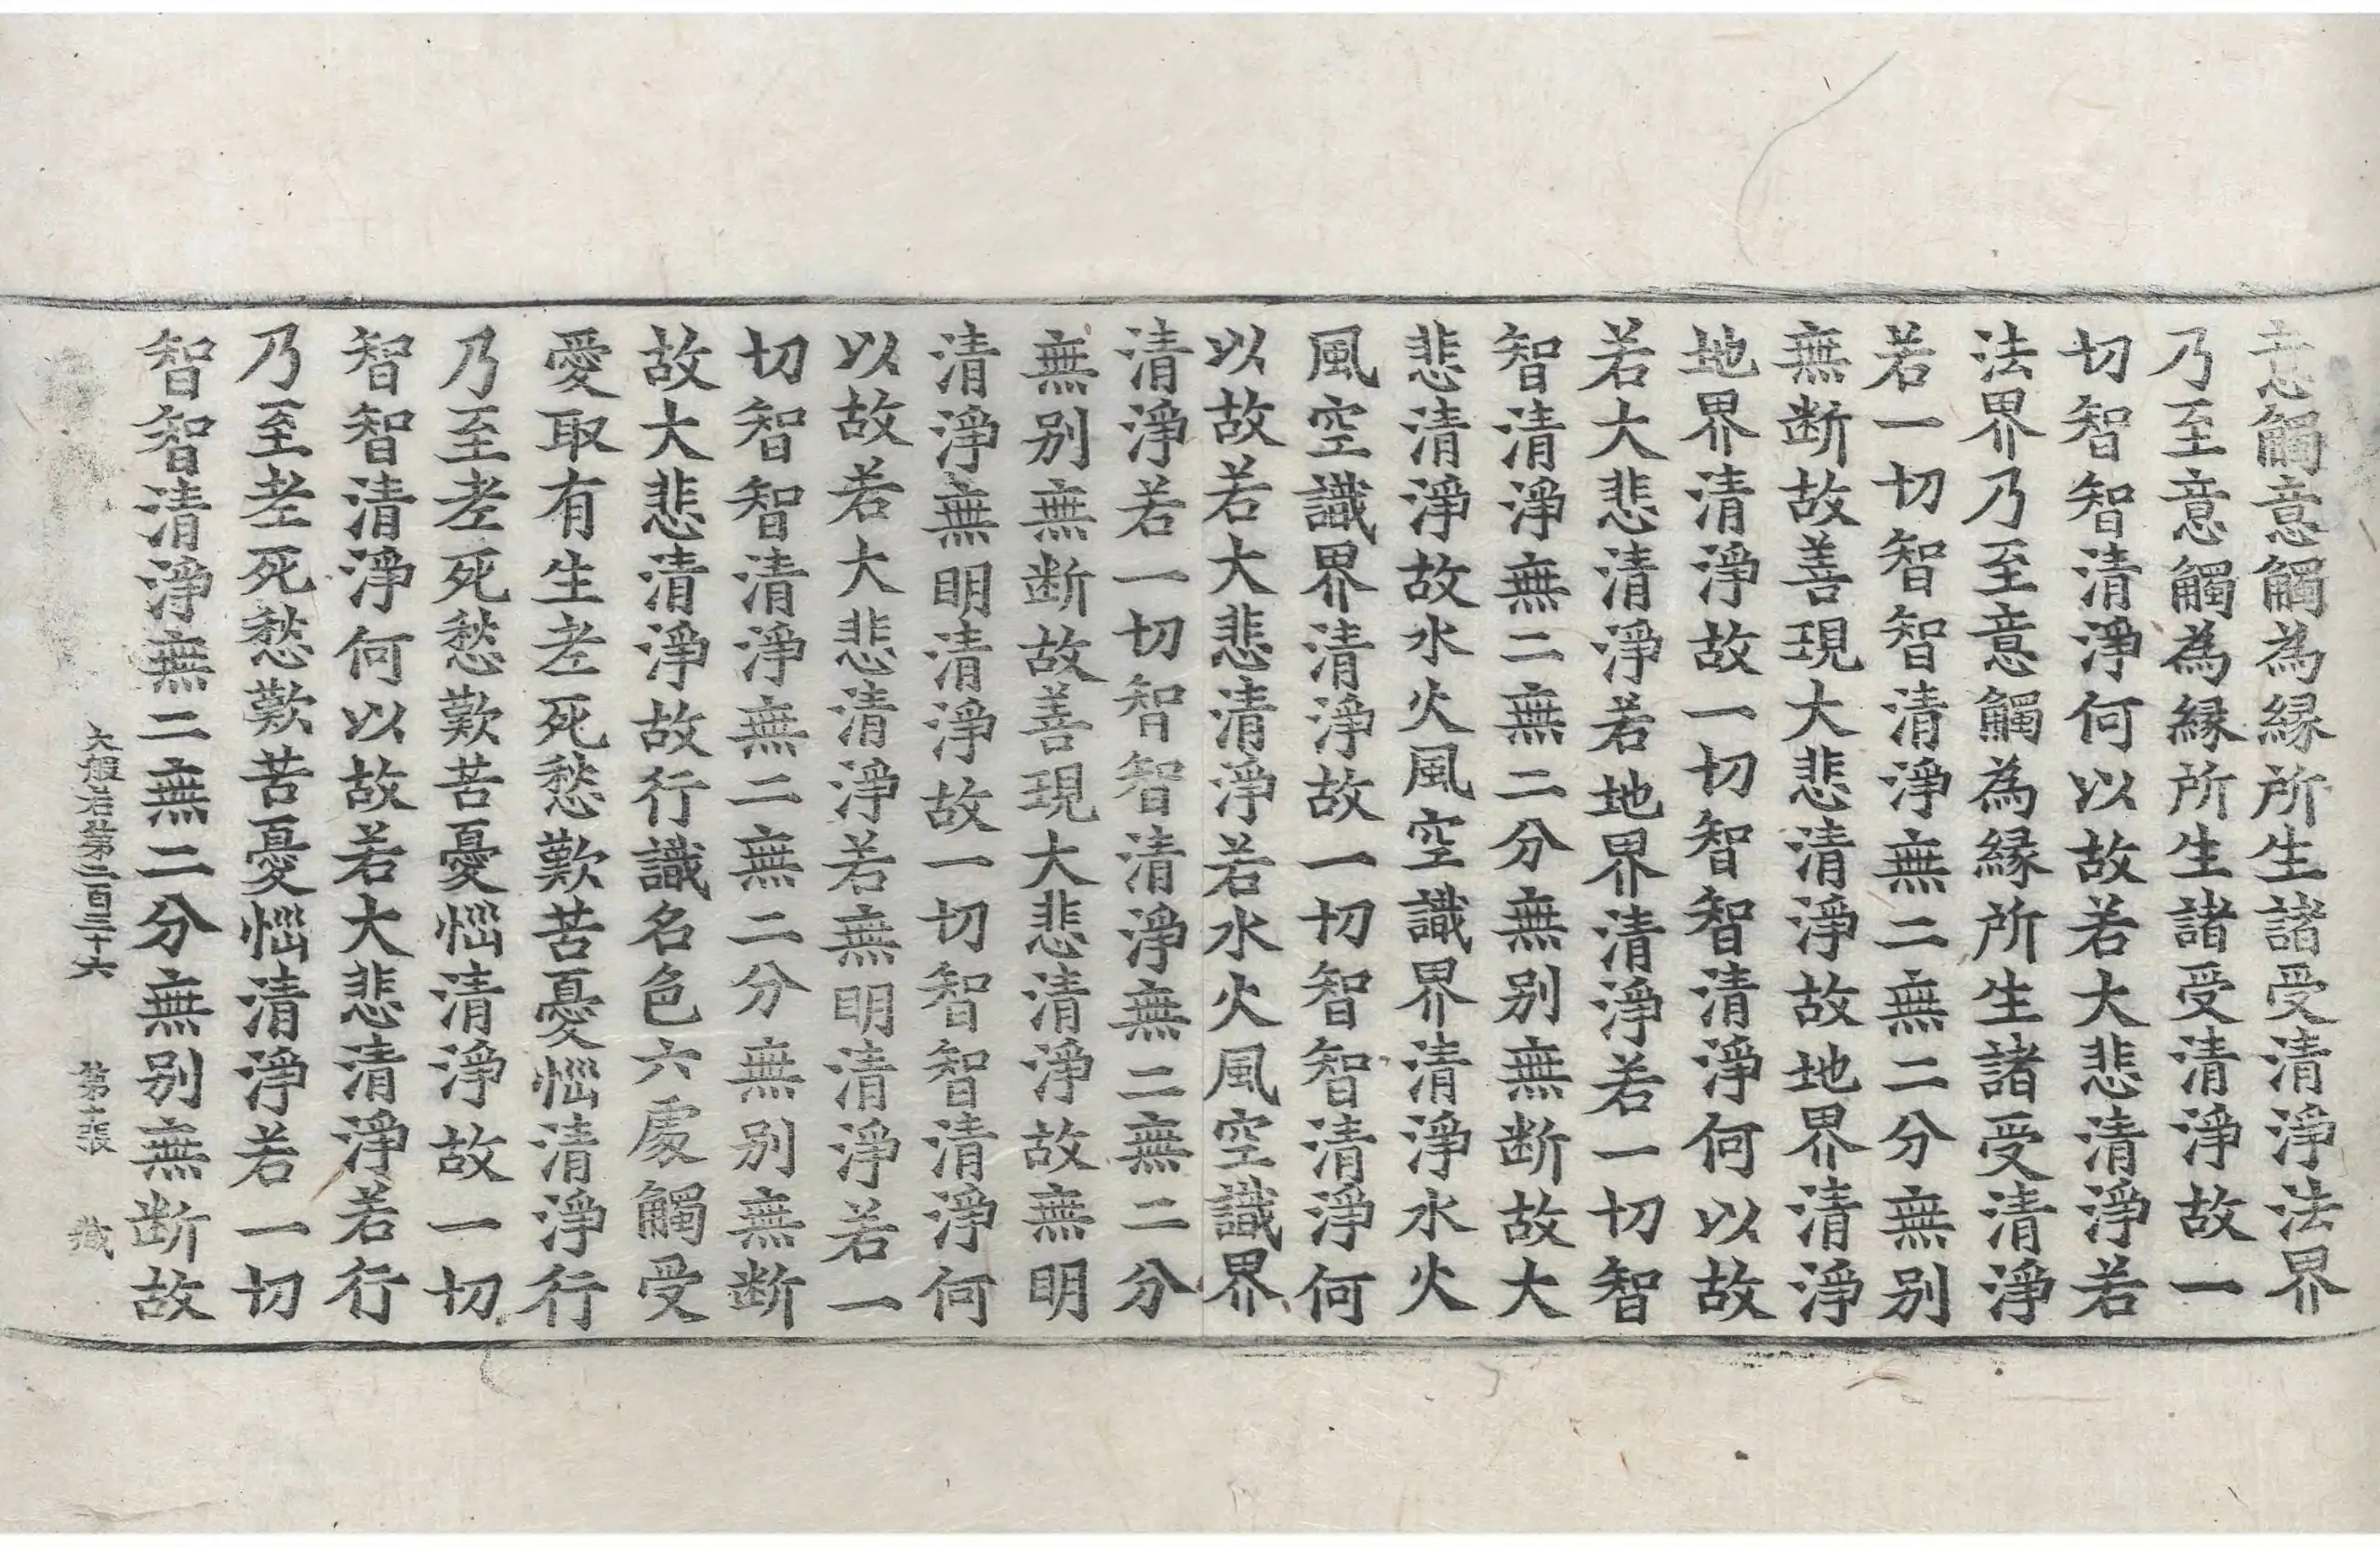 意觸意觸為縁所生諸受清淨法界
乃至意觸為縁所生諸受清淨故一
切智智清淨何以故若大悲清淨若
法界乃至意觸為縁所生諸受清淨
若一切智智清淨無二無二分無别
無断故善現大悲清淨故地界清淨
地界清淨故一切智智清淨何以故
若大悲清淨若地界清淨若一切智
智清淨無二無二分無别無断故大
悲清淨故水火風空識界清淨水火
風空識界清淨故一切智智清淨何
以故若大悲清淨若水火風空識界
清淨若一切智智清淨無二無二分
無别無断故善現大悲清淨故無明
清淨無明清淨故一切智智清淨何
以故若大悲清淨若無明清淨若一
切智智清淨無二無二分無别無断
故大悲清淨故行識名色六處觸受
愛取有生老死愁歎苦憂惱清淨行
乃至老死愁歎苦憂惱清淨故一切
智智清淨何以故若大悲清淨若行
乃至老死愁歎苦憂惱清淨若一切
智智清淨無二無二分無别無断故
大般若第二百三十六 第十張 藏